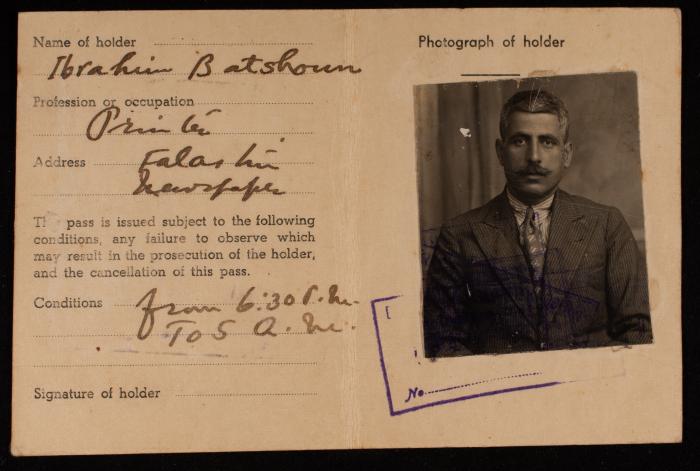 Name of holder
Ibrahim Batshoun
Profession or occupation
Printer
Address Falastin
Newspaper
This pass is issued subject to the following
conditions, any failure to observe which
may result in the prosecution of the holder,
and the cancellation of this pass.
Conditions from 6:30 P.M.
To 5 A.M.
Signature of holder
Photograph of holder
No